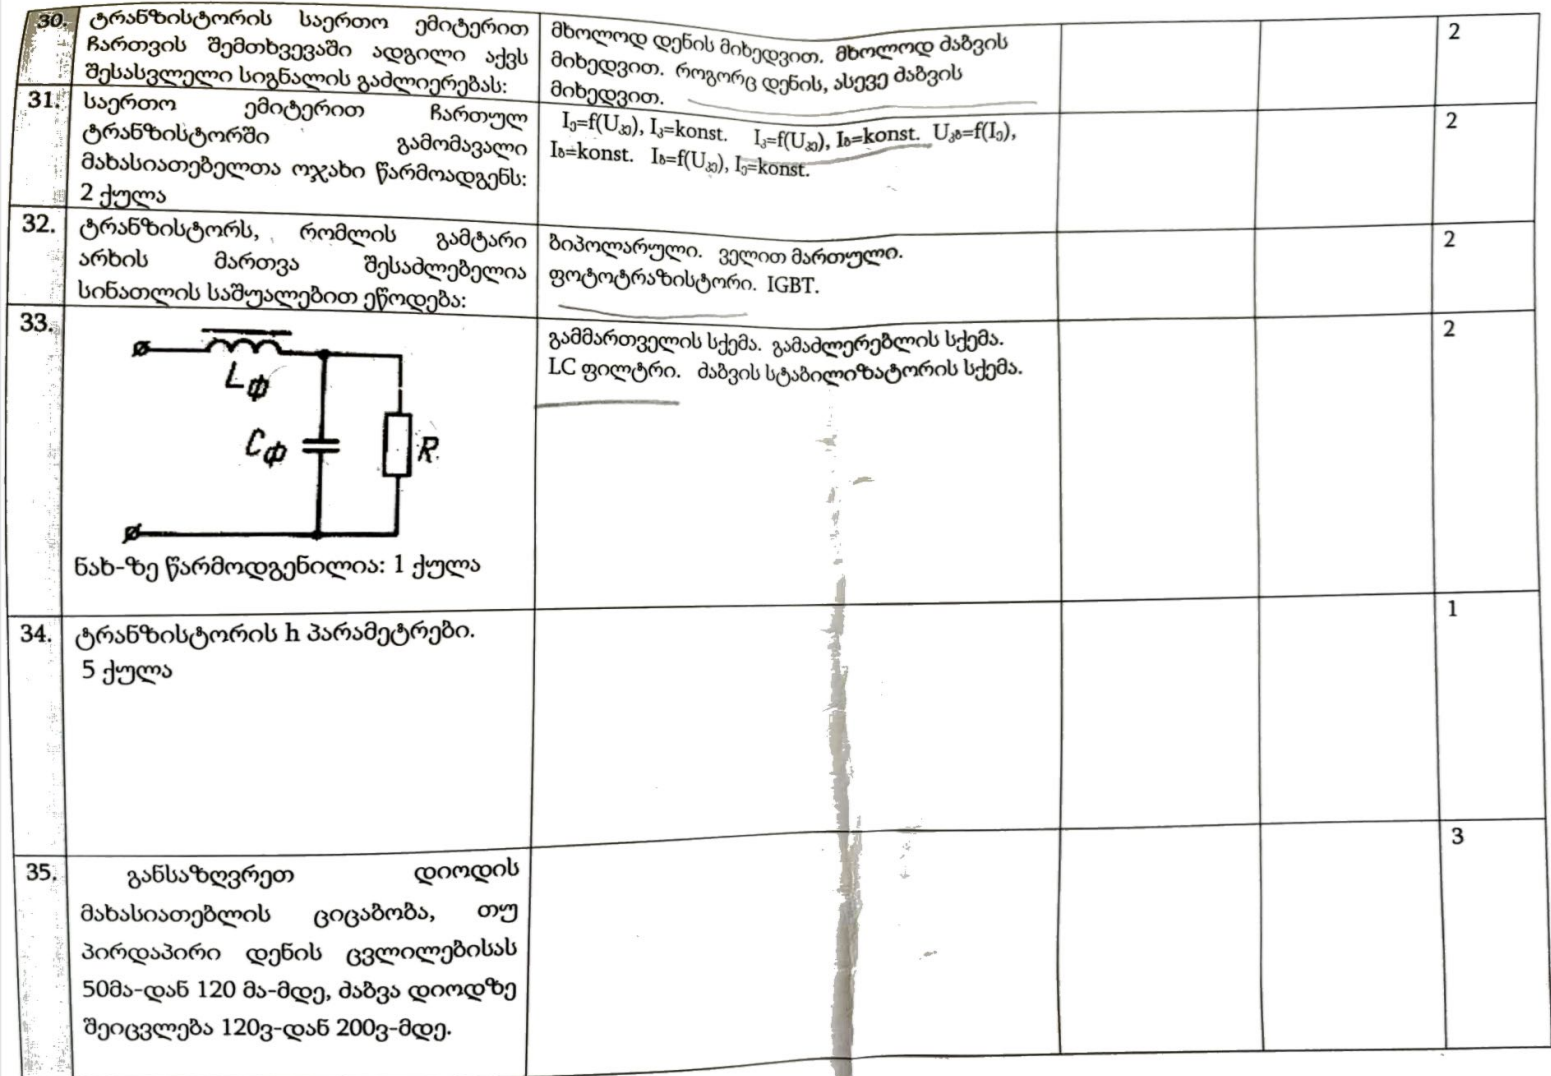 30.
ტრანზისტორის საერთო ემიტერით
ჩართვის შემთხვევაში ადგილი აქვს
შესასვლელი სიგნალის გაძლიერებას:
მხოლოდ დენის მიხედვით. მხოლოდ ძაბვის
მიხედვით. როგორც დენის, ასევე ძაბვის
მიხედვით.
2
31.
საერთო ემიტერით ჩართულ
ტრანზისტორში გამომავალი
მახასიათებელთა ოჯახი წარმოადგენს:
2 ქულა
Iე=f(Uკე), Iკ=konst. Iკ=f(Uკე), Iბ=konst. Uკბ=f(Iე),
Iბ=konst. Iბ=f(Uკე), Iე=konst.
2
32.
ტრანზისტორს, რომლის გამტარი
არხის მართვა შესაძლებელია
სინათლის საშუალებით ეწოდება:
ბიპოლარული. ველით მართული.
ფოტოტრაზისტორი. IGBT.
2
33.
Lф
Cф
R
ნახ-ზე წარმოდგენილია: 1 ქულა
გამმართველის სქემა. გამაძლერებლის სქემა.
LC ფილტრი. ძაბვის სტაბილიზატორის სქემა.
2
34.
ტრანზისტორის h პარამეტრები.
5 ქულა
1
35.
განსაზღვრეთ დიოდის
მახასიათებლის ციცაბობა, თუ
პირდაპირი დენის ცვლილებისას
50მა-დან 120 მა-მდე, ძაბვა დიოდზე
შეიცვლება 120ვ-დან 200ვ-მდე.
3